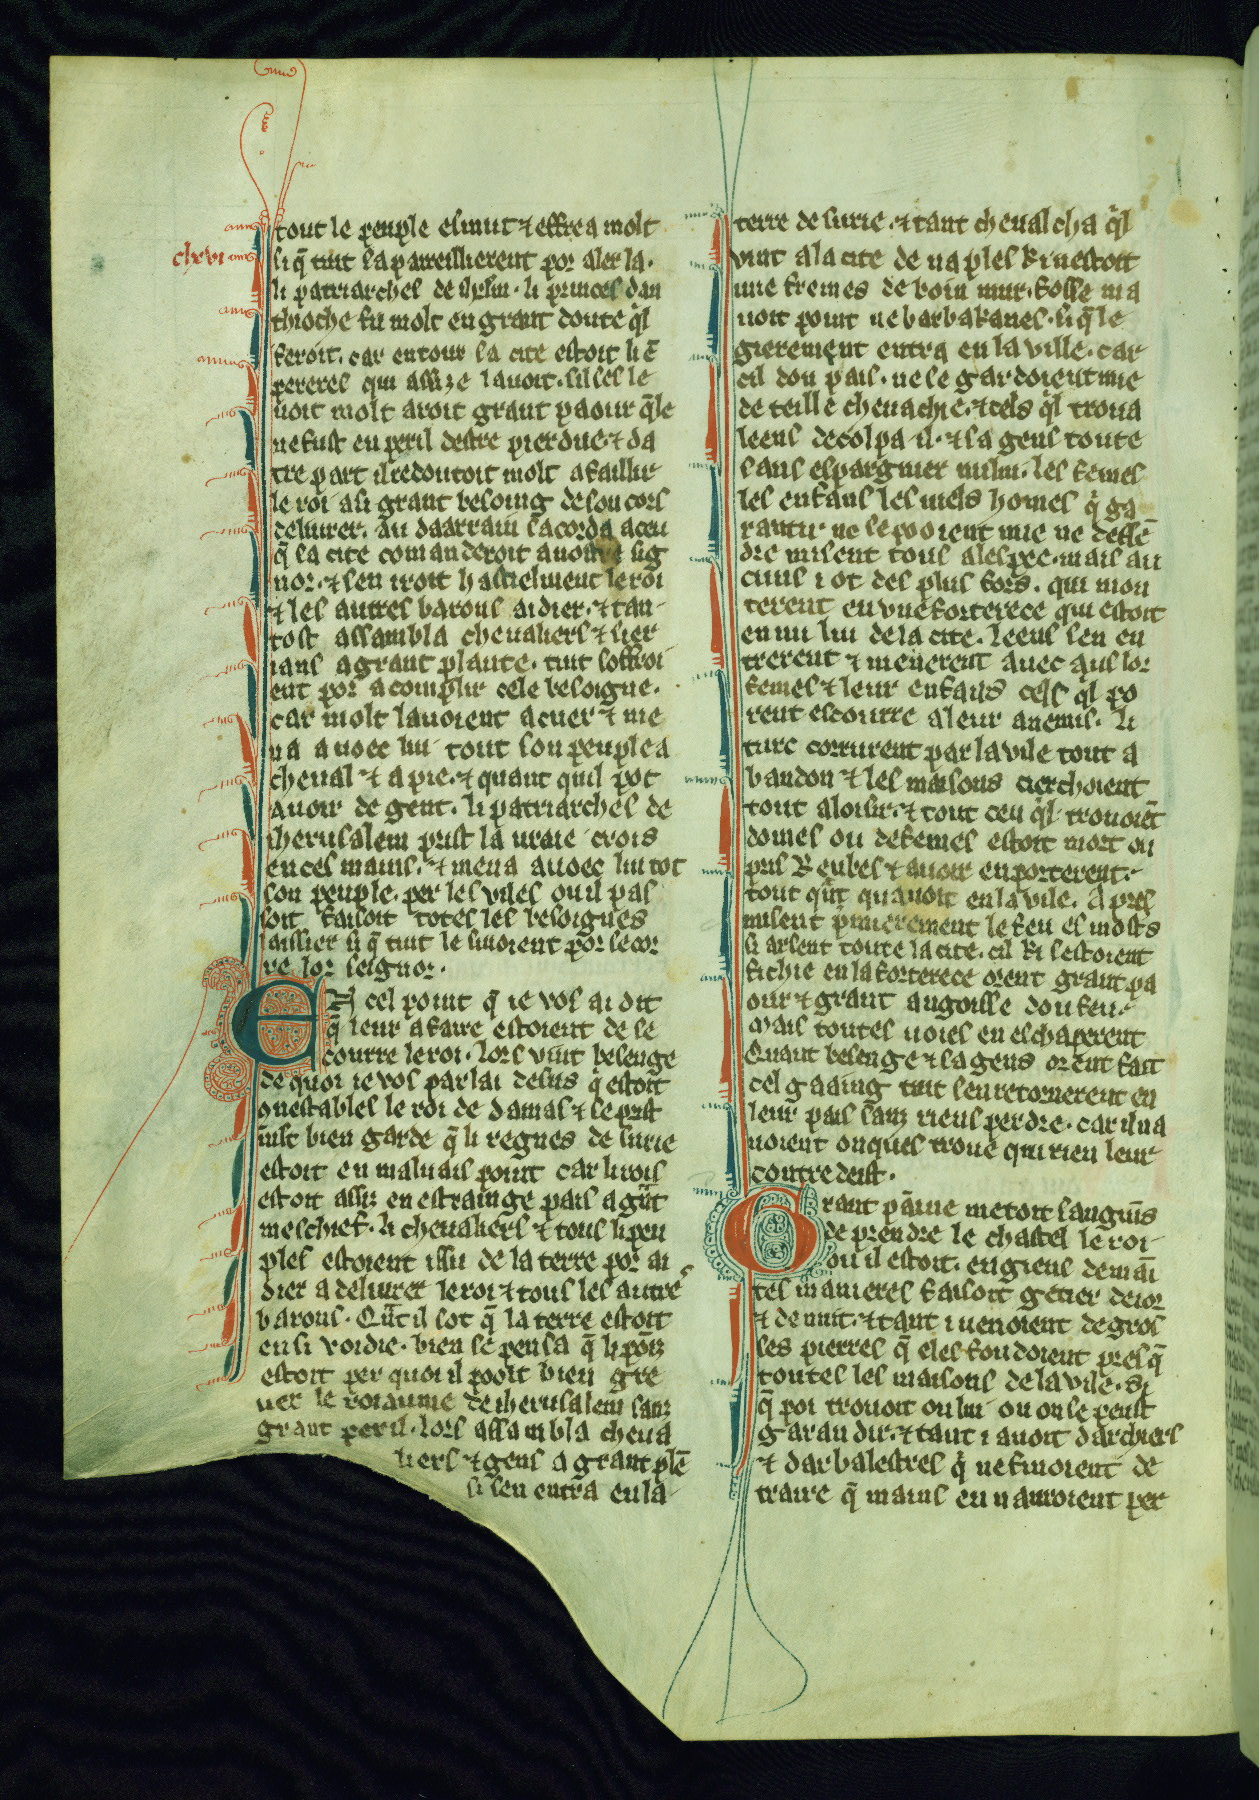 tout le peuple esmut ⁊ effrea molt
si q̃ tuit sapareillierent por aler la.
ch̃. vi.
li patriarches de ih̃rlm. li princes dan
thioche fu molt en grant doute q̃l
feroit. car entour sa cite estoit li ẽ
pereres qui assize lavoit. sil les le
voit molt avoit grant paour q̃le
ne fust en peril destre pierdue. ⁊ da
tre part il redoutoit molt a faillir
le roi a si grant besoing de son cors
delivrer. au daarrain sacorda a ceu
q̃ la cite comanderoit a nostre sig
nor. ⁊ sen iroit hastielment le roi
⁊ les autres barons aidier. ⁊ tan
tost assambla chevaliers ⁊ sier
ians a grant plante. tuit soffroi
ent por acomplir cele besoigne.
car molt lavoient a cuer ⁊ me
na avoec lui tout son peuple a
cheval ⁊ a pie. ⁊ quant quil pot
avoir de gent. li patriarches de
iherusalem prist la vraie crois
en ces mains. ⁊ mena avoec lui tot
son peuple. per les viles ou il pas
soit faisoit totes les besoignes
laissier si q̃ tuit le sivoient por secor
re lor seignor.
En cel point q̃ ie vos ai dit
q̃ leur afaire estoient de se
courre le roi. lors vint beseuge
de quoi ie vos parlai desus q̃ estoit
onestables le roi de damas ⁊ se prist
mlt bien garde q̃ li regnes de surie
estoit en malvais point car li rois
estoit assiz en estrainge pais a g̃nt
meschief. li chevaliers ⁊ tous li peu
ples estoient issu de la terre por ai
dier a delivrer le roi ⁊ tous les autres
barons. Qũt il sot q̃ la terre estoit
ensi voidie. bien se pensa q̃ li poiz
estoit per quoi il poolt bien gre
ver le roiaume de iherusalem sanz
grant peril. lors assambla cheva
liers ⁊ gens a grant plẽ
si sen entra en la
terre de surie. ⁊ tant chevalcha q̃l
vint a la cite de naples ki nestoit
mie fremes de boin mur. fosse na
voit point ne barbakanes. si q̃ le
gierement entra en la ville. car
cil dou pais. ne se gardoient mie
de teille chevachie. ⁊ cels q̃l trova
leens decolpa il. ⁊ sa gens toute
sans espargnier nului. les femes
les enfans les viels homes q̃ ga
rantir ne se pooient mie ne deffẽ
dre misent tous a lespee. mais au
cuns i ot des plus fors. qui mon
terent en une forterece qui estoit
en mi liu de la cite. leens sen en
trerent ⁊ menerent avec aus lor
femes ⁊ leur enfans cels q̃l po
rent escourre a leur anemis. li
turc corrurent par la vile tout a
bandon ⁊ les maisons cierchoient
tout a loisir. ⁊ tout ceu q̃l trovoiẽt
domes ou de femes estoit mort ou
pris Reubes ⁊ avoir enporterent.
tout q̃nt quavoit en la vile. Apres
misent p̃mierement le feu es indsts
si arsent toute la cite. cil ki sestoient
fichie en la forterece orent grant pa
our ⁊ grant angoisse dou feu.
Mais toutes voies en eschaperent
Quant beseuge ⁊ sa gens orent fait
cel gaaing tuit sen retornerent en
leur pais sanz riens perdre. car il na
voient onques trove qui rien leur
contredeist.
Grant paine metoit sanguis̃
de prendre le chastel le roi
ou il estoit. engiens de mai
tes manieres faisoit getier de ior
⁊ de nuit. ⁊ tant i venoient de gros
ses pierres q̃ eles fondoient presq̃
toutes les maisons de la vile. Si
q̃ poi trovoit on liu ou on se peust
garandir. ⁊ tant i avoit darchiers
⁊ darbalestres q̃ ne finoient de
traire q̃ mains en navroient per